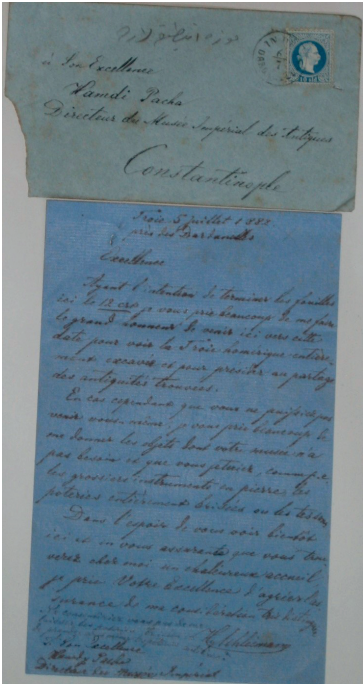 à Son Excellence
Hamdi Pacha
Directeur du Musée Impérial des Antiques
Constantinople
Troie 5 juillet 1882
près des Dardanelles
Excellence
Ayant l'intention de terminer les fouilles
ici le je vous prie beaucoup de me faire
le grand honneur de venir ici vers cette
date pour voir la Troie homérique entière
ment excavée et pour présider au partage
des antiquités trouvées.
En cas cependant que vous ne puissiez pas
venir vous-même, je vous prie beaucoup de
me donner les objets dont votre musée n'a
pas besoin et que vous comme p.e.
les grossiers instruments en pierre, les
poteries entièrement brisées ou les
Dans l'espoir de vous voir bientôt
ici et en vous assurant que vous trou
verez chez moi un chaleureux accueil
je prie Votre Excellence d'agréer l'as
surance de ma considération
HSchliemann
à Son Excellence
Hamdy Pacha
Directeur du Musée Impérial